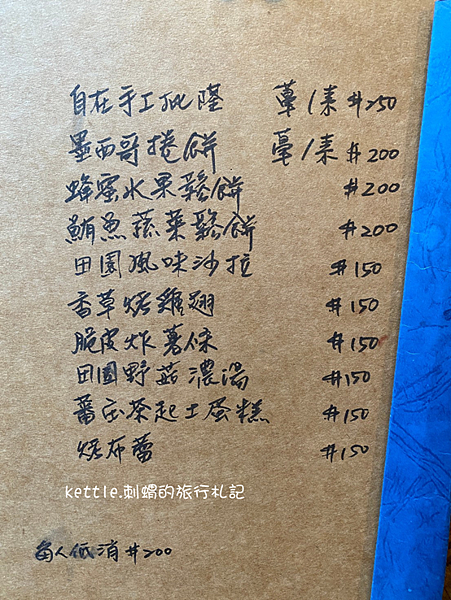 自在手工披薩 葷/素 #250
墨西哥捲餅 葷/素 #200
蜂蜜水果鬆餅 #200
鮪魚蔬菜鬆餅 #200
田園風味沙拉 #150
香草烤雞翅 #150
脆皮炸薯條 #150
田園野菇濃湯 #150
蕃庄茶起士蛋糕 #150
烤布蕾 #150
kettle.刺蝟的旅行札記
每人低消#200